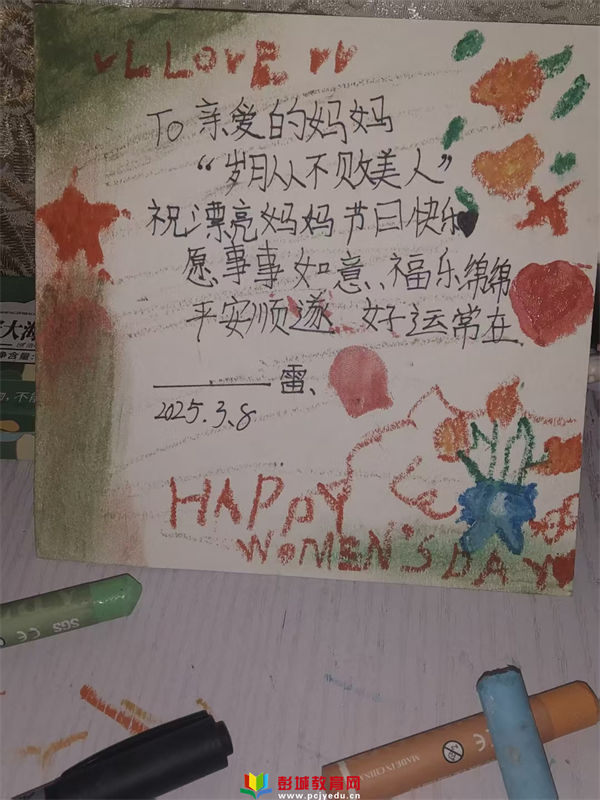 LLOVE
To 亲爱的妈妈
“岁月从不败美人”
祝漂亮妈妈节日快乐
愿事事如意、福乐绵绵
平安顺遂 好运常在
雷、
2025.3.8
HAPPY
WOMEN'S DAY
大海
净含量:
SGS CE
MADE IN CHIN
CE
彭城教育网
www.pcjyedu.cn